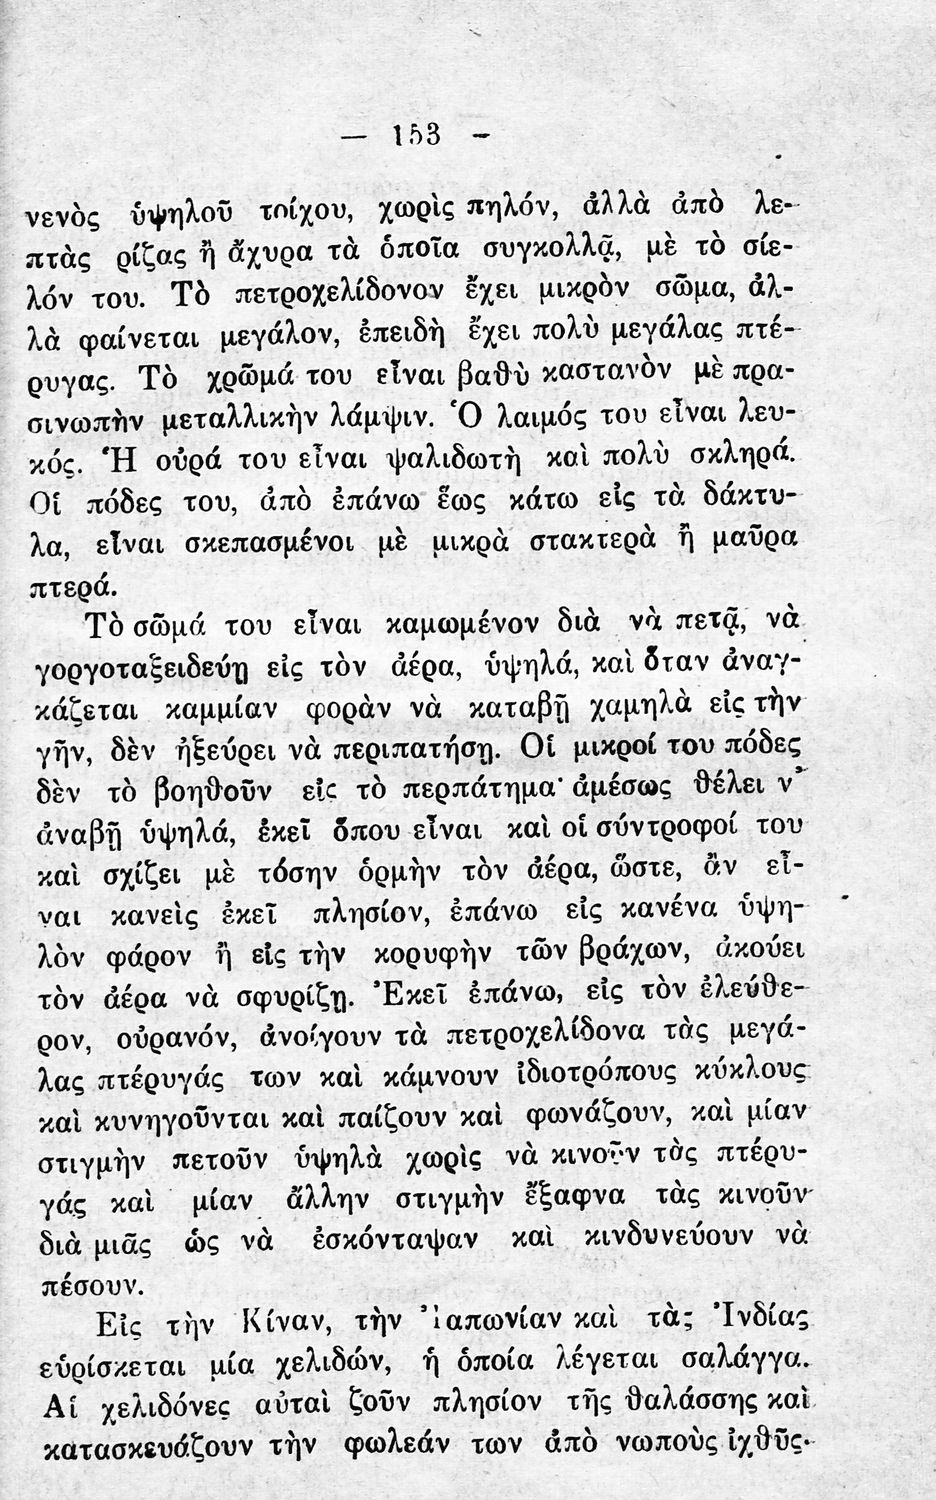 — 153 -
νενὸς ὑψηλοῦ τοίχου, χωρὶς πηλόν, ἀλλὰ ἀπὸ λε-
πτὰς ρίζας ἢ ἄχυρα τὰ ὁποῖα συγκολλᾷ, μὲ τὸ σίε-
λόν του. Τὸ πετροχελίδονον ἔχει μικρὸν σῶμα, ἀλ-
λὰ φαίνεται μεγάλον, ἐπειδὴ ἔχει πολὺ μεγάλας πτέ-
ρυγας. Τὸ χρῶμά του εἶναι βαθὺ καστανὸν μὲ πρα-
σινωπὴν μεταλλικὴν λάμψιν. Ὁ λαιμός του εἶναι λευ-
κός. Ἡ οὐρά του εἶναι ψαλιδωτὴ καὶ πολὺ σκληρά.
Οἱ πόδες του, ἀπὸ ἐπάνω ἕως κάτω εἰς τὰ δάκτυ-
λα, εἶναι σκεπασμένοι μὲ μικρὰ στακτερὰ ἢ μαῦρα
πτερά.
Τὸ σῶμά του εἶναι καμωμένον διὰ νὰ πετᾷ, νὰ
γοργοταξειδεύῃ εἰς τὸν ἀέρα, ὑψηλά, καὶ ὅταν ἀναγ-
κάζεται καμμίαν φορὰν νὰ καταβῇ χαμηλὰ εἰς τὴν
γῆν, δὲν ἠξεύρει νὰ περιπατήσῃ. Οἱ μικροί του πόδες
δὲν τὸ βοηθοῦν εἰς τὸ περπάτημα· ἀμέσως θέλει ν'
ἀναβῇ ὑψηλά, ἐκεῖ ὅπου εἶναι καὶ οἱ σύντροφοί του
καὶ σχίζει μὲ τόσην ὁρμὴν τὸν ἀέρα, ὥστε, ἂν εἶ-
ναι κανεὶς ἐκεῖ πλησίον, ἐπάνω εἰς κανένα ὑψη-
λὸν φάρον ἢ εἰς τὴν κορυφὴν τῶν βράχων, ἀκούει
τὸν ἀέρα νὰ σφυρίζῃ. Ἐκεῖ ἐπάνω, εἰς τὸν ἐλεύθε-
ρον, οὐρανόν, ἀνοίγουν τὰ πετροχελίδονα τὰς μεγά-
λας πτέρυγάς των καὶ κάμνουν ἰδιοτρόπους κύκλους
καὶ κυνηγοῦνται καὶ παίζουν καὶ φωνάζουν, καὶ μίαν
στιγμὴν πετοῦν ὑψηλὰ χωρὶς νὰ κινοῦν τὰς πτέρυ-
γάς καὶ μίαν ἄλλην στιγμὴν ἔξαφνα τὰς κινοῦν
διὰ μιᾶς ὡς νὰ ἐσκόνταψαν καὶ κινδυνεύουν νὰ
πέσουν.
Εἰς τὴν Κίναν, τὴν Ἰαπωνίαν καὶ τὰς Ἰνδίας
εὑρίσκεται μία χελιδών, ἡ ὁποία λέγεται σαλάγγα.
Αἱ χελιδόνες αὐταὶ ζοῦν πλησίον τῆς θαλάσσης καὶ
κατασκευάζουν τὴν φωλεάν των ἀπὸ νωποὺς ἰχθῦς·